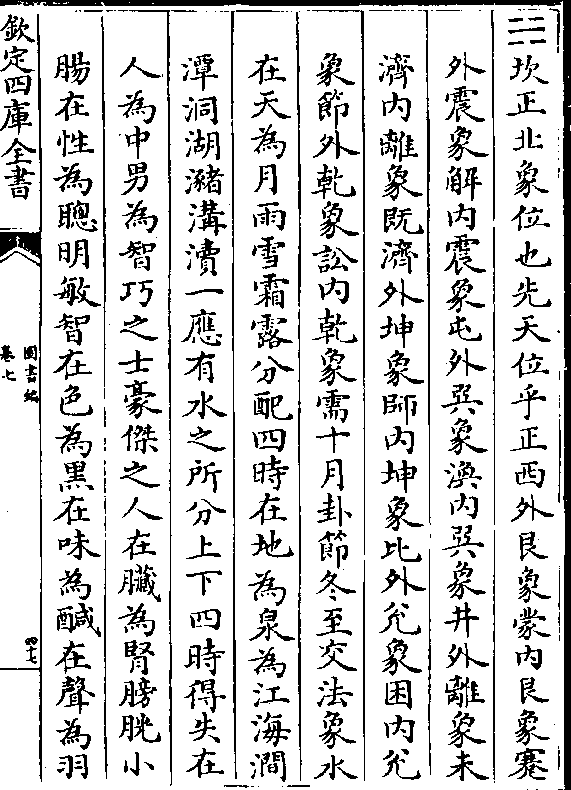 ☵坎正北象位也先天位乎正西外艮象蒙内艮象蹇
外震象解内震象屯外巽象渙内巽象井外離象未
濟内離象既濟外坤象師内坤象比外兊象困内兊
象節外乾象訟内乾象需十月卦節冬至交法象水
在天為月雨雪霜露分配四時在地為泉為江海澗
潭洞湖瀦溝瀆一應有水之所分上下四時得失在
人為中男為智巧之士豪傑之人在臟為腎膀胱小
腸在性為聰明敏智在色為黒在味為醎在聲為羽
欽定四庫全書
圖書編
卷七
四十七